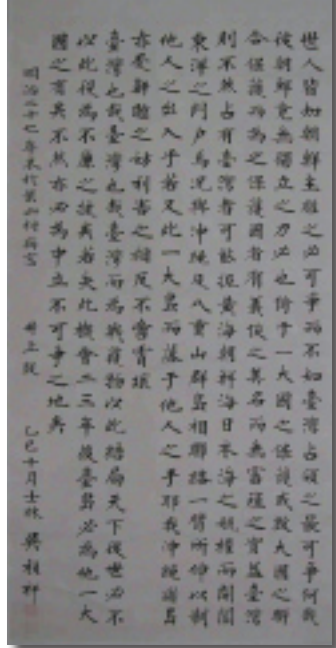 世人皆知朝鮮主權之必可爭而不知臺灣占領之最可爭何哉
後朝鮮竟無獨立之力必也倚于一大國之保護或數大國之聯
合保護而為之保護國者有義俠之美名而無富強之實益臺灣
則不然占有臺灣者可能扼黃海朝鮮海日本海之航權而開闔
東洋之門戶焉況與沖繩及八重山群島相聯絡一臂所伸以制
他人之出入乎若又此一大島而落于他人之手耶我沖繩諸島
亦受鼾睡之妨利害之相反不啻霄壤
臺灣也哉臺灣也哉臺灣而為我獲物以此結局天下後世必不
以此役為不廉之技矣若失此機會二三年後臺島必為他一大
國之有矣不然亦必為中立不可爭之地矣
明治二十七年冬於葉山村病寓 井上毅 乙巳十月士林 吳祖祥